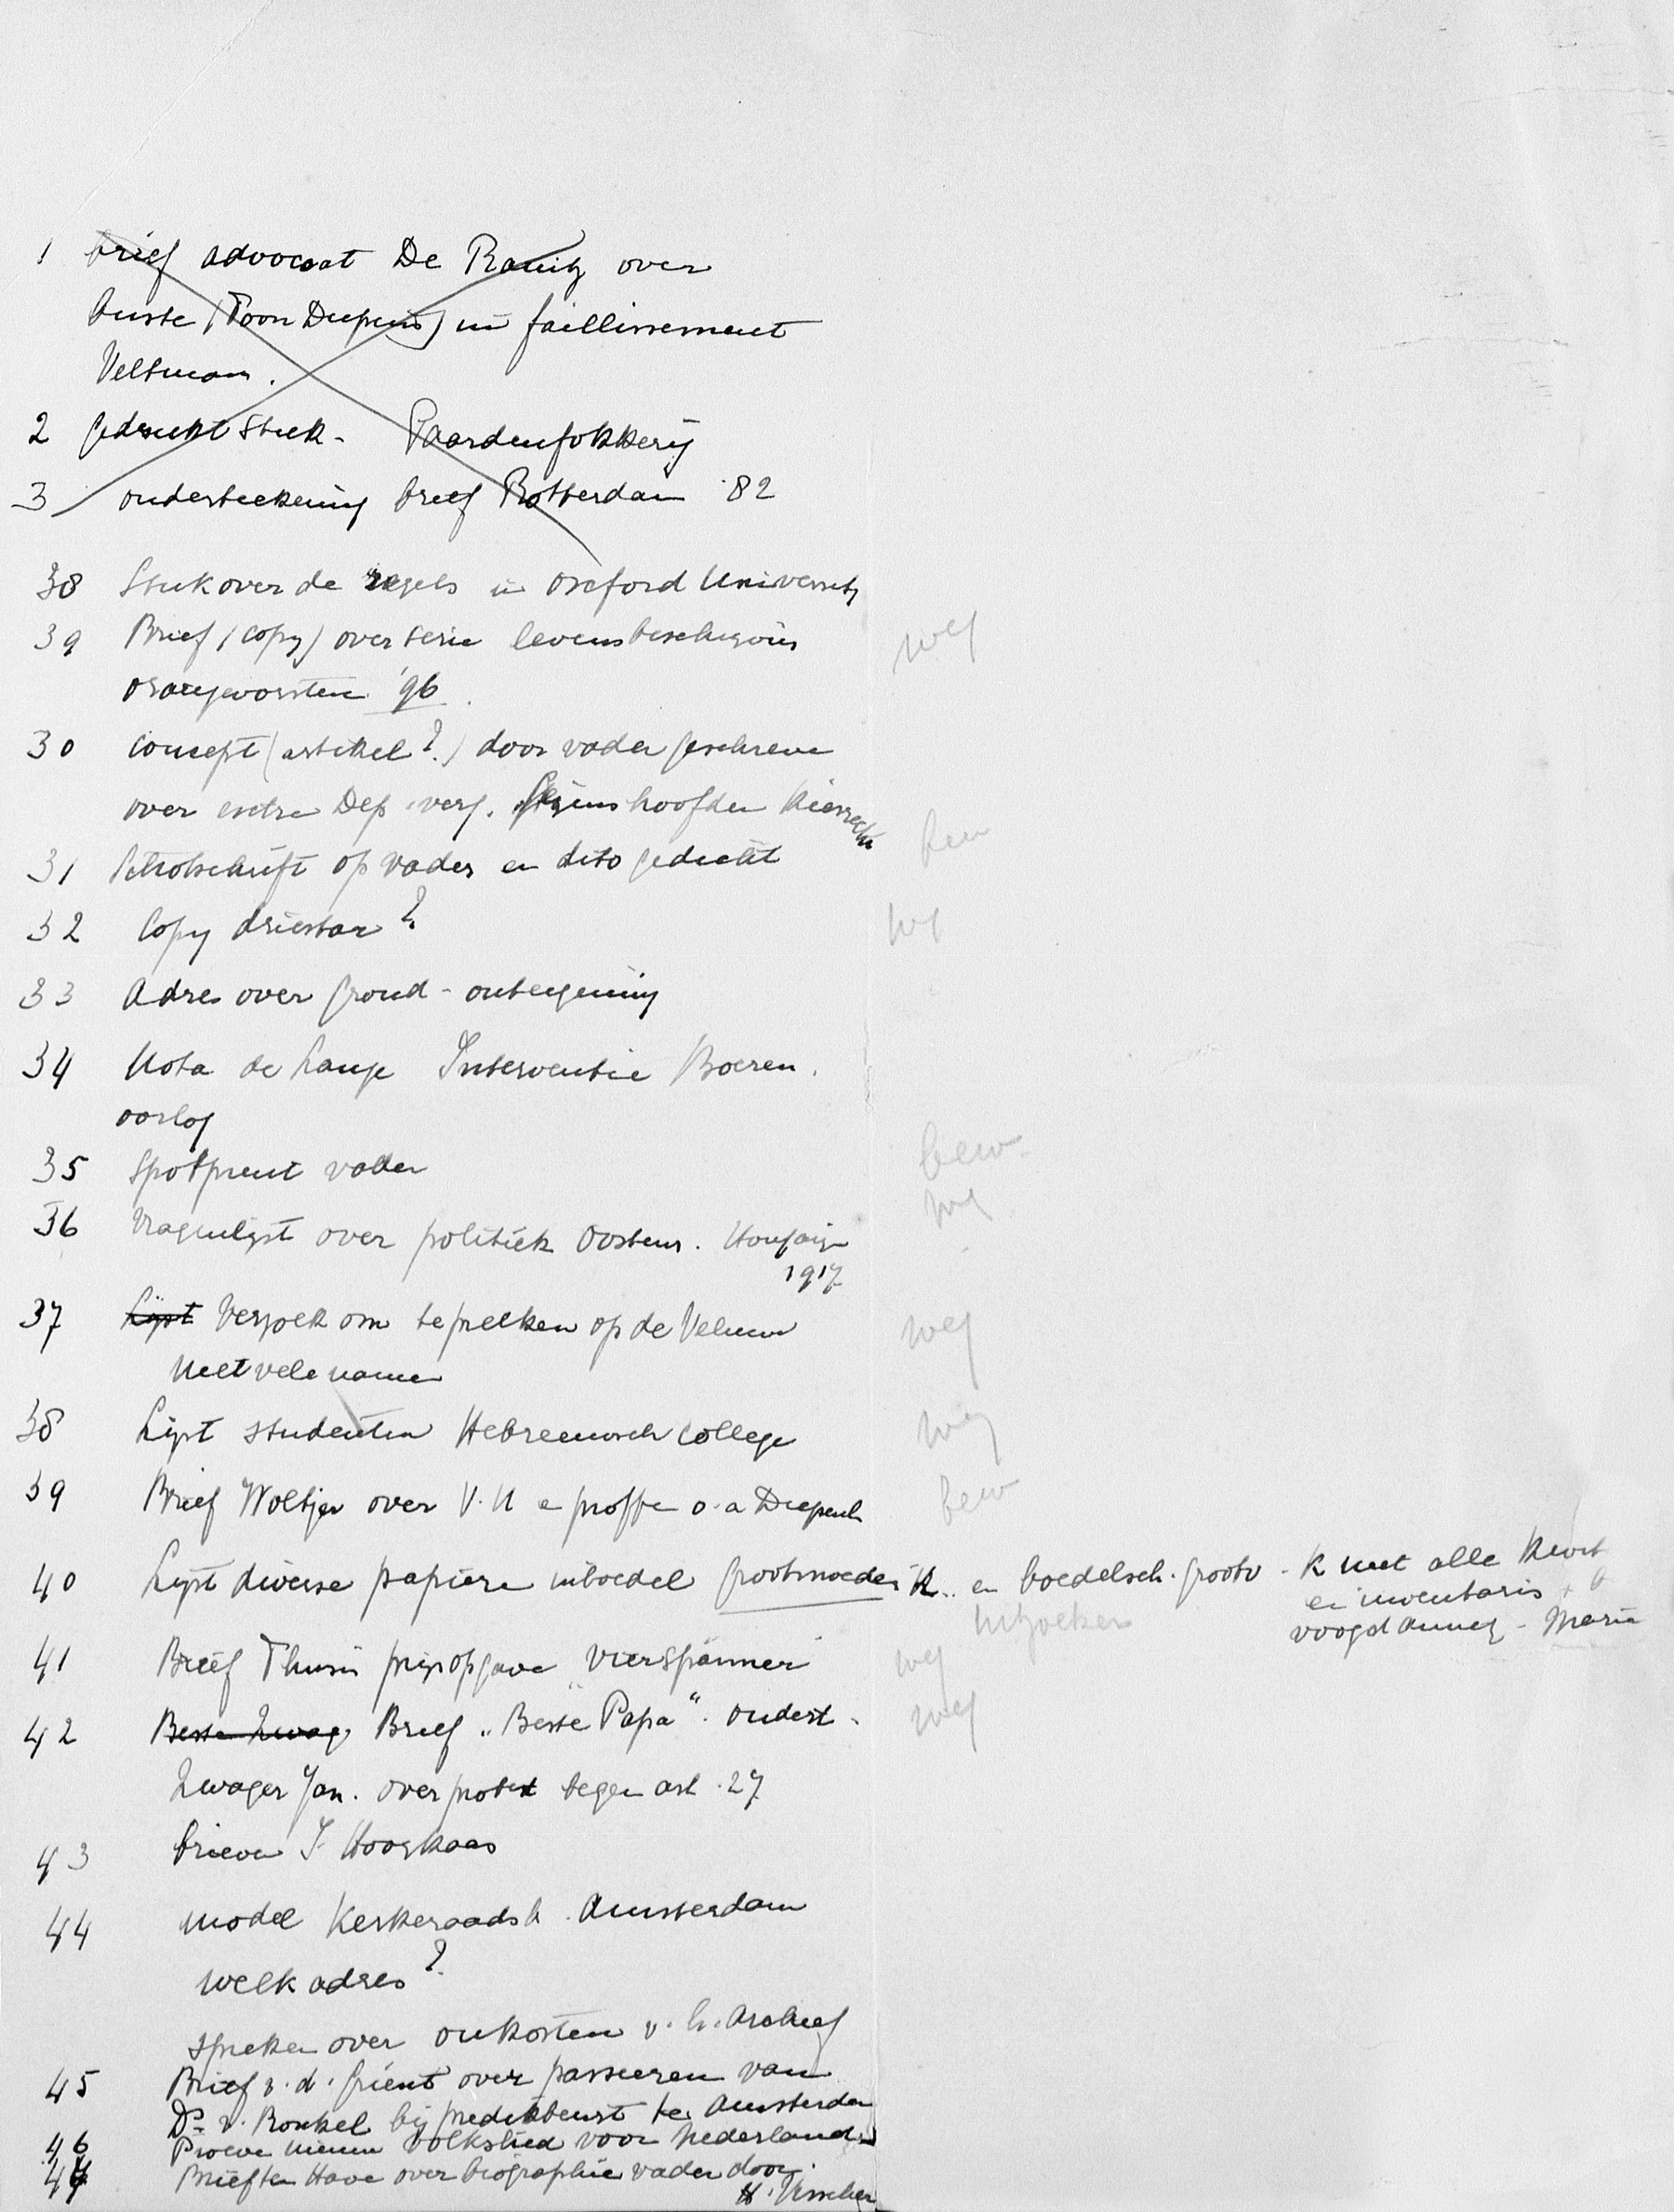 1 brief advocaat De Ranitz over
buste (Toon Dupuis) in faillissement
Veltman.
2 gedrukt stuk - Paardenfokkerij
3 onderteekening brief Rotterdam '82
38 Stuk over de regels in Oxford University
39 Brief (copy) over serie levensbeschrijving weg
oranjevorsten '96.
30 concept (artikel?) door vader geschreven
over extra Dep. verg. hoofden kiesrecht
31 Schotschrift op vader en dito gedicht bew
32 Copy driestar? weg
33 Adres over grond-onteigening
34 Nota de Lange Interventie Boeren.
oorlog
35 Spotprent vader bew.
36 Vragenlijst over politiek Oostenr. Hongarije weg
1917
37 Lijst Verzoek om te spreken op de Veluwe weg
met vele namen
38 Lijst studenten Hebreeuwsch college weg
39 Brief Woltjer over V.U en proffen o.a Diepenh bew
40 Lijst diverse papieren inboedel grootmoeder K.. en boedelsch. grootv - K met alle
en inventaris
uitzoeken voogd - Maria
41 Brief Thurn prijsopgave "vierspanner" weg
42 Beste Zwag Brief "Beste Papa". ondert. weg
Zwager Jan. over protest tegen art. 27
43 brieven J. Hooykaas
44 model Kerkeraadsh. Amsterdam
welk adres?
spreken over onkosten v. h. Archief
45 Brief v.d. Grient over passeeren van
Ds v. Ronkel bij predikbeurt te Amsterdam
46 Proeve nieuw volkslied voor Nederland
47 Brief ten Have over biographie vader door
H. Visscher